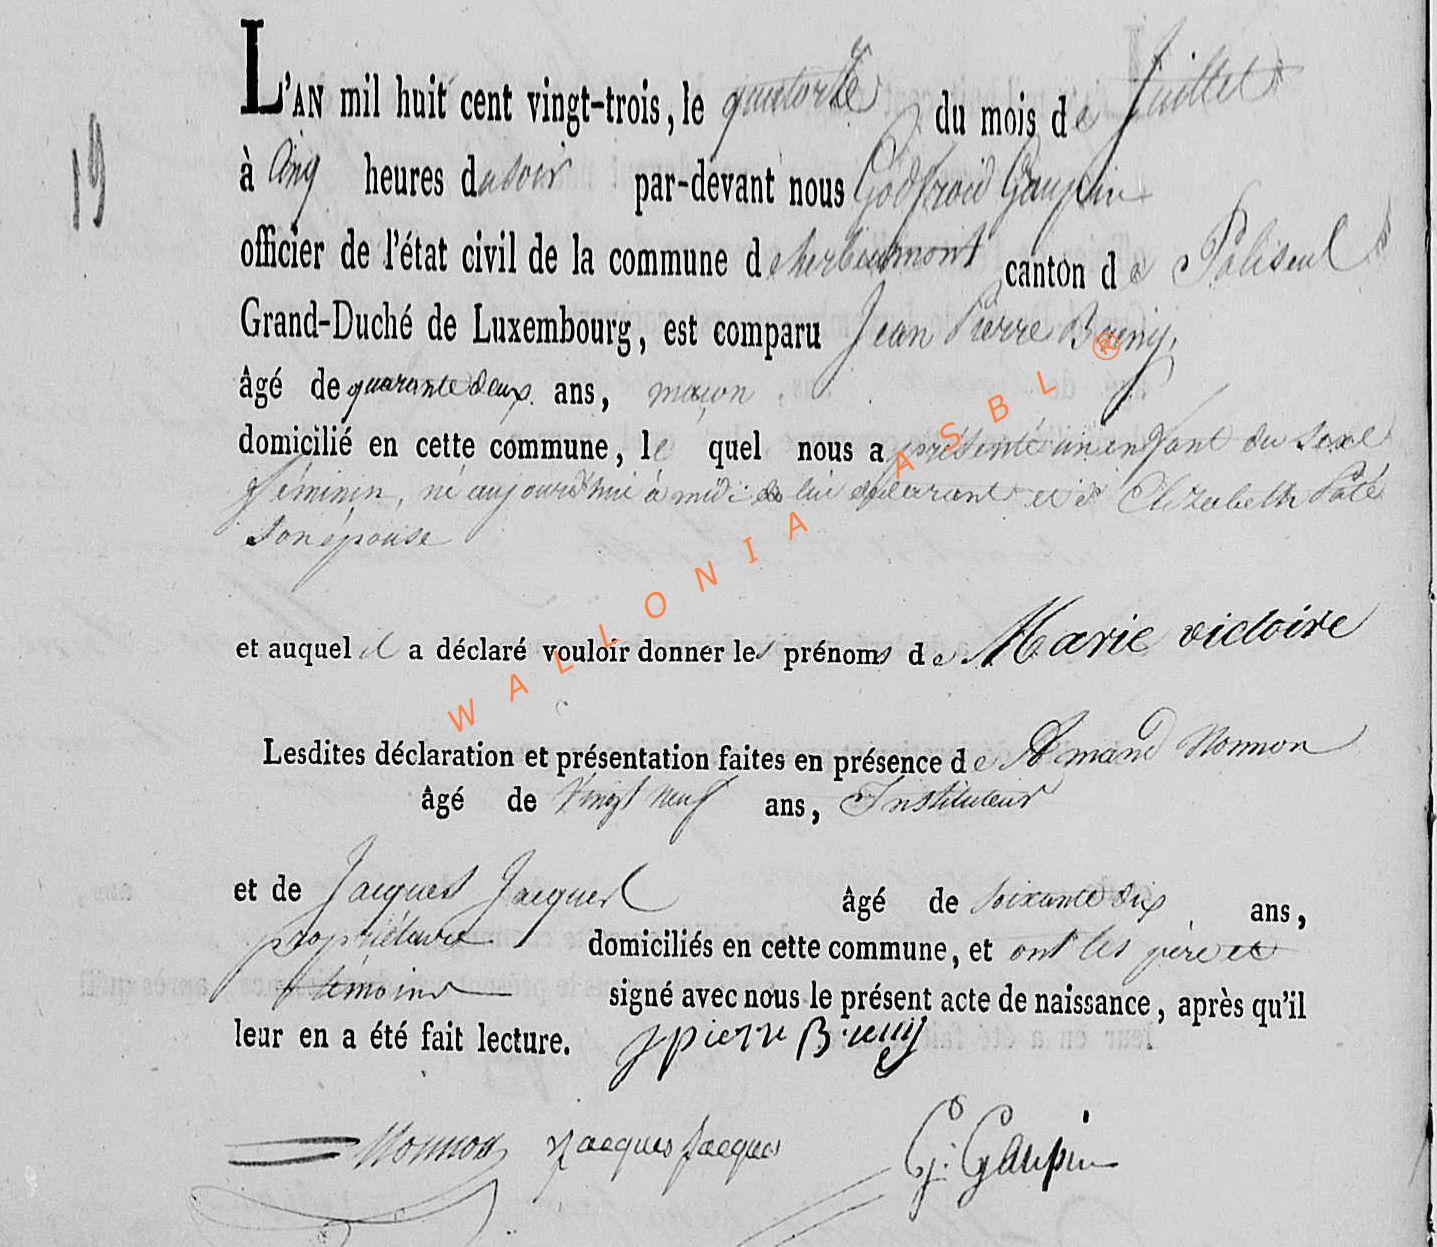 L'AN mil huit cent vingt-trois, le quatorze du mois de Juillet
19
à Cinq heures du soir par-devant nous Godfroid Gaupin
officier de l'état civil de la commune d'herbeumont canton de Paliseul
Grand-Duché de Luxembourg, est comparu Jean Pierre
âgé de quarante deux ans, maçon
domicilié en cette commune, le quel nous a présenté un enfant du sexe
féminin, né aujourd'hui à midi de lui déclarant et d' Elizabeth Paté
son épouse
et auquel il a déclaré vouloir donner les prénoms de Marie victoire
Lesdites déclaration et présentation faites en présence de Amand Monmon
âgé de Vingt neuf ans, Instituteur
et de Jacques Jacques âgé de soixante dix ans,
propriétaire domiciliés en cette commune, et ont les père et
témoins signé avec nous le présent acte de naissance, après qu'il
leur en a été fait lecture. J pierre
Monmon Jacques Jacques G. Gaupin
WALLONIA ASBL ®